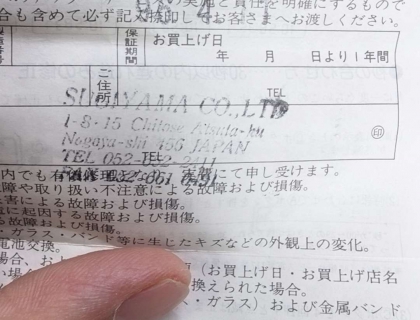 の実施と責任を明確にするもので
合も含めて必ず記入捺印してお客さまへお渡しください。
保証期間
お買上げ日
年 月 日より1年間
ご住所
TEL
SUGIYAMA CO.,LTD
1-8-15 Chitose Atsuta-ku
Nagoya-shi 456 JAPAN
TEL 052-
TEL
印
内でも有償修理となり、実費にて申し受けます。
故障や取り扱い不注意による故障および損傷。
害による故障および損傷。
に起因する故障および損傷。
る故障および損傷。
・ガラス・バンド等に生じたキズなどの外観上の変化。
電池交換。
場合、お
(お買上げ日・お買上げ店名
換えられた場合。
・ガラス)および金属バンド